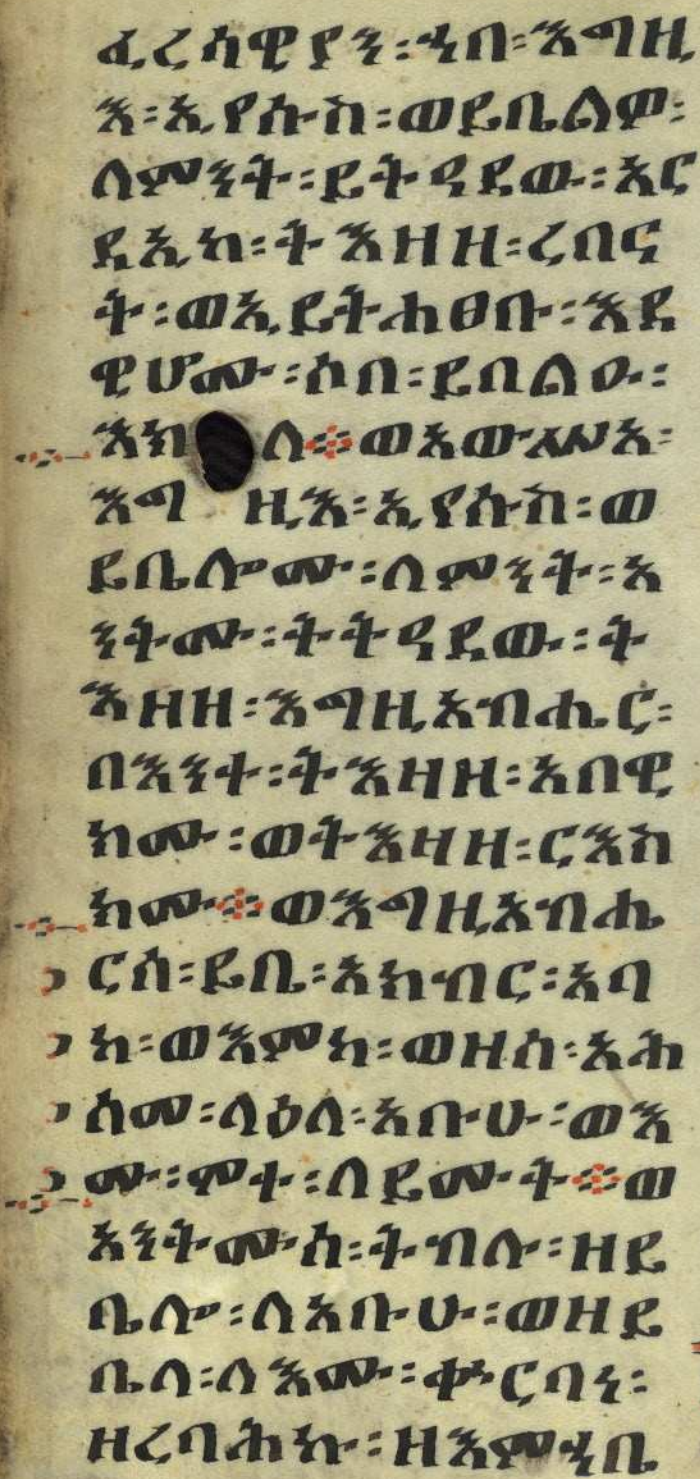 ፈሪሳዊያን፡ኀበ፡እግዚ
እ፡ኢየሱስ፡ወይቤልዎ፡
ለምንት፡ይትዓደው፡አር
ዳኢከ፡ት እዘዘ፡ረበና
ት፡ወኢይትሐፀቡ፡እደ
ዊሆሙ፡ሶበ፡ይበልዑ፡
እክ ለ፨ወአውሥአ፡
እግ ዚእ፡ኢየሱስ፡ወ
ይቤሎሙ፡ለምንት፡አ
ንትሙ፡ትትዓደው፡ት
እዘዘ፡እግዚአብሔር፡
በእንተ፡ትእዛዘ፡አበዊ
ክሙ፡ወትእዛዘ፡ርእስ
ክሙ፨ወእግዚአብሔ
ርሰ፡ይቤ፡አክብር፡አባ
ከ፡ወእምከ፡ወዘሰ፡አሕ
ሰመ፡ላዕለ፡አቡሁ፡ወእ
ሙ፡ሞተ፡ለይሙት፨ወ
አንትሙሰ፡ትብሉ፡ዘይ
ቤሎ፡ለአቡሁ፡ወዘይ
ቤላ፡ለእሙ፡ቍርባነ፡
ዘረባሕኩ፡ዘእምኀቤ